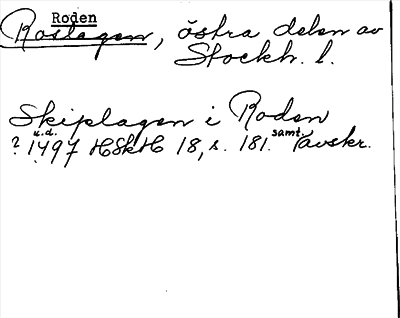 Roden
Roslagen, östra delen av
Stockh. l.
Skiplagen i Roden
u.d. samt.
? 1497 HSkH 18, s. 181. avskr.